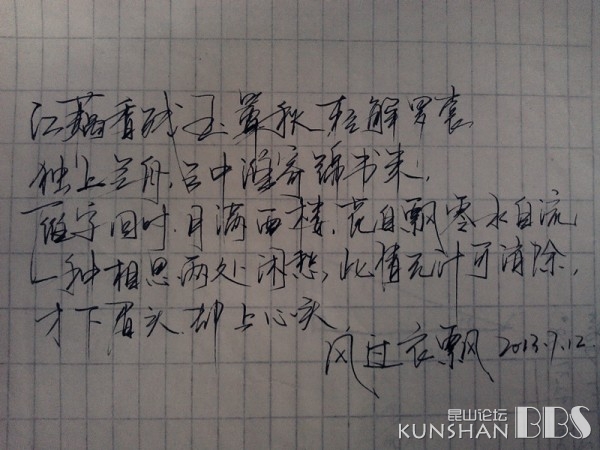 红藕香残玉簟秋,轻解罗裳
独上兰舟,云中谁寄锦书来,
雁字回时,月满西楼,花自飘零水自流
一种相思两处闲愁,此情无计可消除,
才下眉头却上心头
风过衣飘 2013.9.12
昆山论坛
KUNSHAN BBS